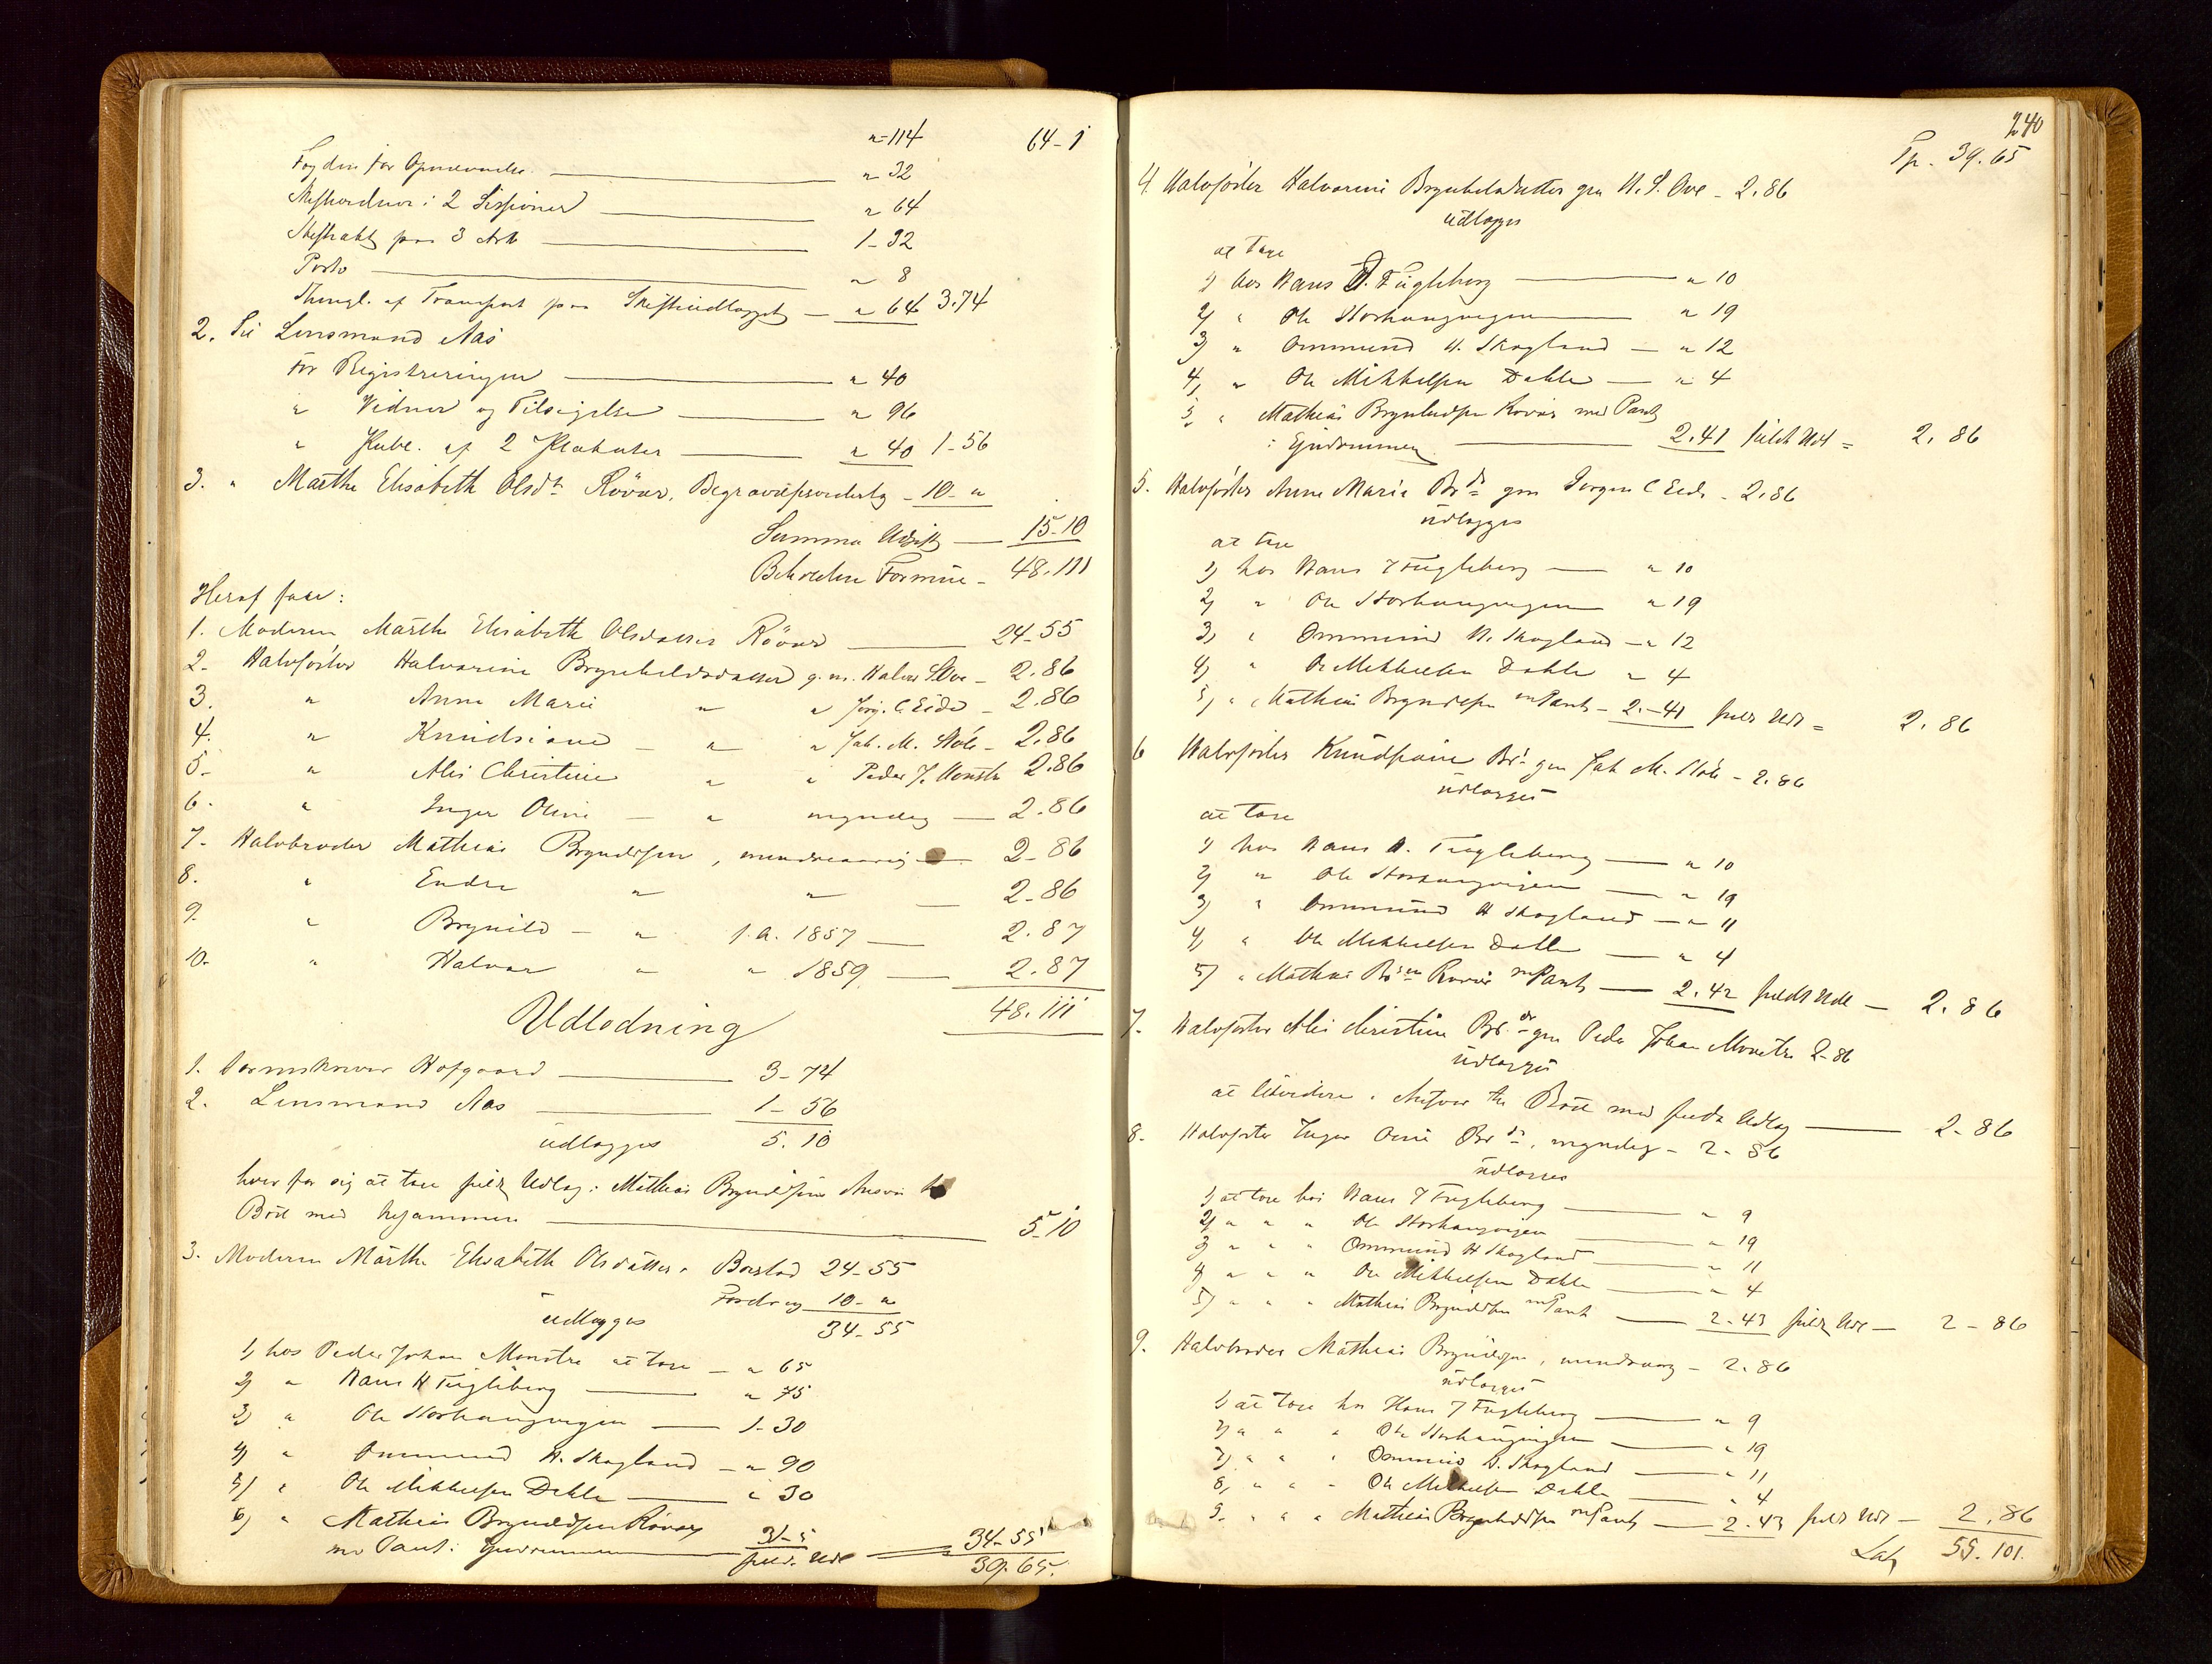 „-114 64-1
Fogden for Opnævnelse „ 32
Skifteordner i 2 Sessioner „ 64
Skifteakt paa 3 Ark 1-32
Porto „ 8
Thingl. af Transport paa Skifteudlægget „ 64 3.74
2. Til Lensmand Aas
for Registreringen „ 40
„ Vidner og Tilsigelse „ 96
„ Publ. af 2 Plakater „ 40 1-56
3. „ Marthe Elisabeth Olsdtr Røvær, Begravelsesudlæg - 10-„
Summa Udgift 15-10
Beholden Formue - 48.111
Heraf faar:
1. Moderen Marthe Elisabeth Olsdatter Røvær 24-55
2. Halvsøster Halvarine Brynhildsdatter g.m. Halvor S Ove - 2.86
3. „ Anne Marie „ „ Jørg. C. Eide - 2.86
4. „ Knudsiane - „ „ Jak. M. Stole - 2.86
5. „ Alis Christine „ „ Peder J. Monstre 2.86
6. „ Inger Oline - „ myndig - 2.86
7. Halvbroder Mathias Bryndilsen, mindreaarig 2-86
8. „ Endre „ „ - 2-86
9. „ Brynild - „ f.a. 1857 2.87
10. „ Halvar „ „ 1859 2.87
48.111
Udlodning
1. Sorenskriver Hofgaard 3-74
2. Lensmand Aas 1-56
udlægges 5.10
hver for sig at tage fuldt Udlæg i Mathias Bryndilsens Ansvar til
Boet med tilsammen 5-10
3. Moderen Marthe Elisabeth Olsdatter, Boeslod 24-55
Fordring 10-„
udlægges 34-55
1) hos Peder Johan Monstre at tage - „ 65
2) „ Hans H Fugleberg „ 75
3) „ Ole Storhaugvigen 1-30
4) „ Ommund H. Skogland - „ 90
5) „ Ole Mikkelsen Dahle „ 30
6) „ Mathias Bryndilsen Røvær
m. Pant i Eiendommen 31-5 fuldt Udl 34-55
39.65.
240
Tp. 39.65
4. Halvsøster Halvarine Brynhildsdatter gm H. S. Ove - 2.86
udlægges
at tage
1) hos Hans J. Fugleberg „ 10
2) „ Ole Storhaugvigen „ 19
3) „ Ommund H. Skogland - „ 12
4) „ Ole Mikkelsen Dahle - „ 4
5) „ Mathias Brynhildsen Røvær med Pant
i Eiendommen 2.41 fuldt Udl = 2.86
5. Halvsøster Anne Marie Brdr gm Jørgen C Eide - 2.86
udlægges
at tage
1) hos Hans J Fugleberg - „ 10
2) „ Ole Storhaugvigen „ 19
3) „ Ommund H. Skogland - „ 12
4) „ Ole Mikkelsen Dahle „ 4
5) „ Mathias Bryndilsen m Pant - 2.-41 fuldt Udl = 2.86
6 Halvsøster Knudsiane Brdr gm Jak M. Stole - 2.86
udlægges
at tage
1) hos Hans H. Fugleberg - „ 10
2) „ Ole Storhaugvigen - „ 19
3) „ Ommund H Skogland - „ 11
4) „ Ole Mikkelsen Dahle - „ 4
5) „ Mathias Brsen Røvær m Pant - 2.42 fuldt Udl - 2.86
7. Halvsøster Alis Christine Brdr gm Peder Johan Monstre 2-86
udlægges
at likvidere i Ansvar til Boet med fuldt Udlæg 2-86
8. Halvsøster Inger Oline Brdr, myndig - 2-86
udlægges
1) at tage hos Hans J Fugleberg „ 9
2) „ „ „ Ole Storhaugvigen „ 19
3) „ „ „ Ommund H Skogland „ 11
4) „ „ „ Ole Mikkelsen Dahle „ 4
5) „ „ „ Mathias Bryndilsen m Pant 2-43 fuldt Udl - 2-86
9. Halvbroder Mathias Bryndilsen, mindreaarig - 2.86
udlægges
1) at tage hos Hans J Fugleberg „ 9
2) „ „ „ Ole Storhaugvigen „ 19
3) „ „ „ Ommund H. Skogland „ 11
8) „ „ „ Ole Mikkelsen Dahle „ 4
5. „ „ „ Mathias Brynhildsen m Pant 2-43 fuldt Udl - 2.86
Lat 55.101.